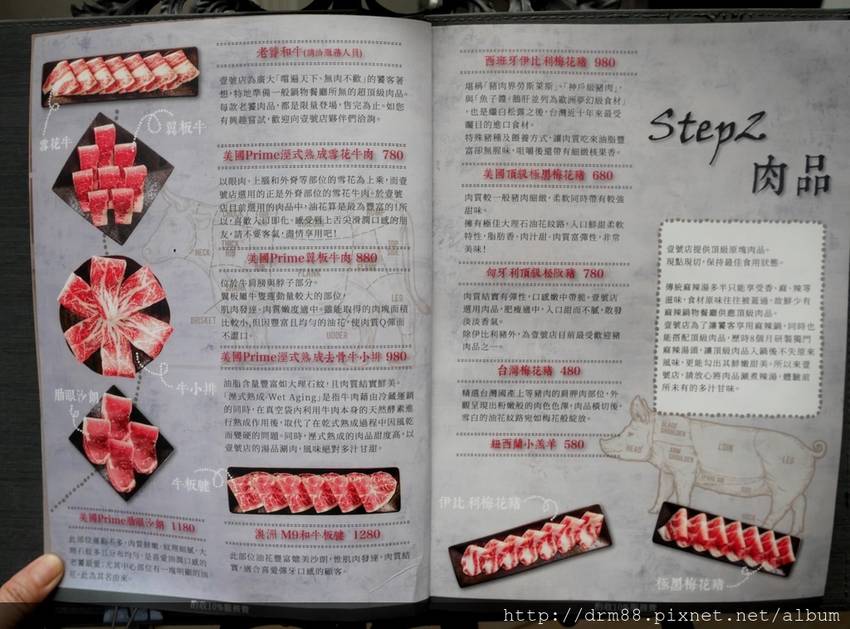 老饕和牛(請洽服務人員)
壹號店為廣大「嚐遍天下、無肉不歡」的饕客著
想,特地準備一般鍋物餐廳所無的超頂級肉品。
每款老饕肉品,都是限量登場,售完為止。如您
有興趣嘗試,歡迎向壹號店夥伴們洽詢。
雪花牛
翼板牛
美國Prime溼式熟成雪花牛肉 780
以眼肉、上腦和外脊等部位的雪花為上乘,而壹
號店選用的正是外脊部位的雪花牛肉。於壹號
店目前選用的肉品中,油花算是最為豐富的!所
以,喜歡入口即化、感受唇上舌尖滑潤口感的朋
友,請不要客氣,盡情享用吧!
美國Prime翼板牛肉 880
位於牛肩膀與脖子部分。
翼板屬牛隻運動量較大的部位,
肌肉發達、肉質嫩度適中。雖能取得的肉塊面積
比較小,但因豐富且均勻的油花,使肉質Q彈而
不澀口。
美國Prime溼式熟成去骨牛小排 980
牛小排
油脂含量豐富如大理石紋,且肉質結實鮮美。
「溼式熟成-Wet Aging」是指牛肉藉由冷藏運銷
的同時,在真空袋內利用牛肉本身的天然酵素進
行熟成作用後,取代了在乾式熟成過程中因風乾
而變硬的問題。同時,溼式熟成的肉品甜度高,以
壹號店的湯品涮肉,風味絕對多汁甘甜。
肋眼沙朗
牛板腱
美國Prime肋眼沙朗 1180
此部位運動不多,肉質鮮嫩、紋理細膩,大
理石紋多且分布均勻,是喜愛油潤口感的
老饕最愛;尤其中心部位有一塊明顯的油
花,此為其名由來。
澳洲 M9和牛板腱 1280
此部位油花豐富媲美沙朗,惟肌肉發達、肉質結
實,適合喜愛彈牙口感的顧客。
酌收10%服務費
西班牙伊比利梅花豬 980
堪稱「豬肉界勞斯萊斯」、「神戶級豬肉」,
與「魚子醬、鵝肝並列為歐洲夢幻級食材」
,也是繼白松露之後,台灣近十年來最受
矚目的進口食材。
特殊豬種及餵養方式,讓肉質吃來油脂豐
富卻無腥味,咀嚼後還帶有細緻核果香。
美國頂級極黑梅花豬 680
肉質較一般豬肉細緻,柔軟同時帶有較強
甜味。
擁有極佳大理石油花紋路,入口鮮甜柔軟
特性,脂肪香、肉汁甜、肉質富彈性,非常
美味!
匈牙利頂級極盼豬 780
肉質結實有彈性,口感嫩中帶脆。壹號店
選用肉品,肥瘦適中,入口甜而不膩,散發
淡淡香氣。
除伊比利豬外,為壹號店目前最受歡迎豬
肉品之一。
台灣梅花豬 480
精選台灣國產上等豬肉的肩胛肉部位,外
觀呈現出粉嫩般的肉色色澤,肉品橫切後,
雪白的油花紋路宛如梅花般綻放。
紐西蘭小羔羊 580
Step2
肉品
壹號店提供頂級原塊肉品。
現點現切,保持最佳食用狀態。
傳統麻辣湯多半只能享受香、麻、辣等
滋味,食材原味往往被蓋過,故鮮少有
麻辣鍋物餐廳供應頂級肉品。
壹號店為了讓饕客享用麻辣鍋,同時也
能搭配頂級肉品,歷時8個月研製獨門
麻辣湯頭,讓頂級肉品入鍋後不失原來
風味,更能勾出其鮮嫩甜美。所以來壹
號店,請放心將肉品涮煮辣湯,體驗前
所未有的多汁甘味。
伊比利梅花豬
極黑梅花豬
NECK
FLANK
LEG
BRISKET
UDDER
HEAD
BLADE SHOULDER
ARM SHOULDER
LOIN
LEG
酌收10%服務費
http://drm88.pixnet.net/album